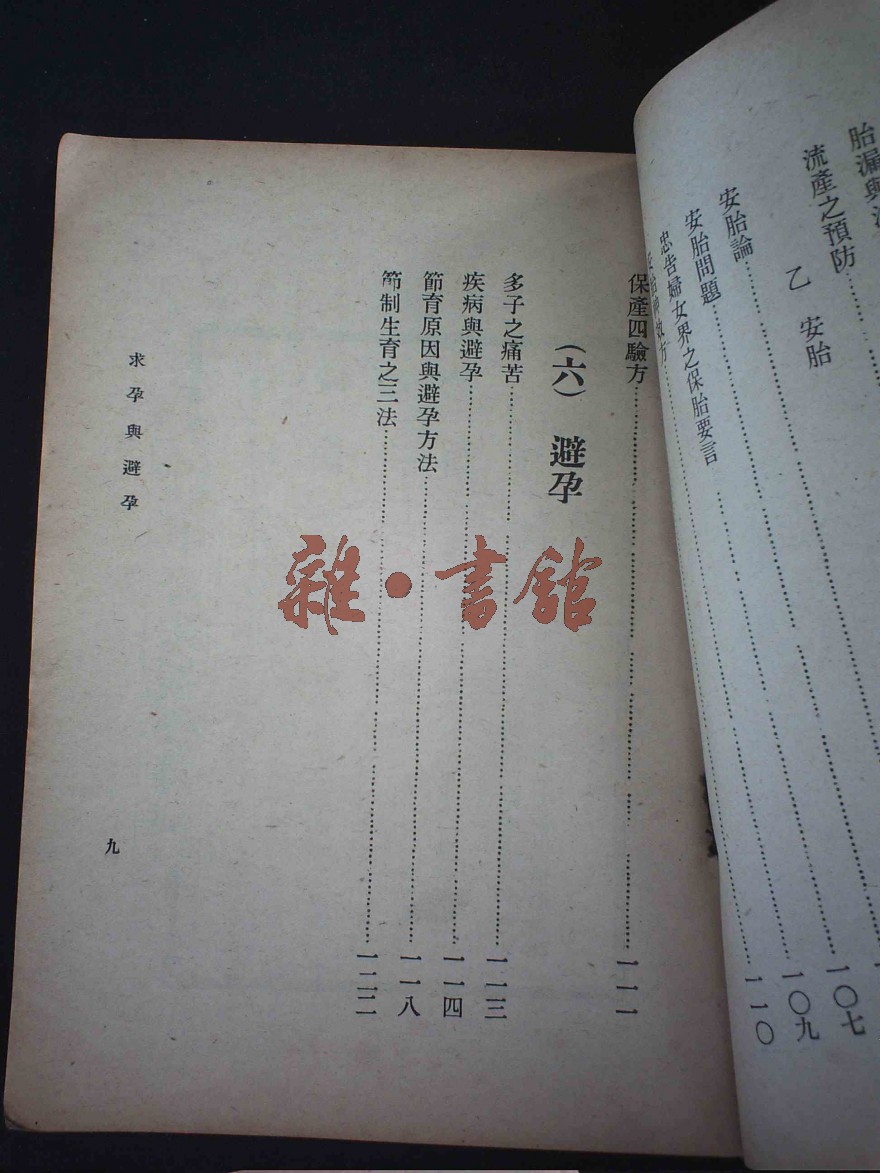 胎漏與
流產之預防
乙 安胎
安胎論……一〇七
安胎問題……一〇九
忠告婦女界之保胎要言……一一〇
效方
保產四驗方……一一一
(六) 避孕
多子之痛苦……一一三
疾病與避孕……一一四
節育原因與避孕方法……一一八
節制生育之三法……一二二
求孕與避孕
九
雜·書館